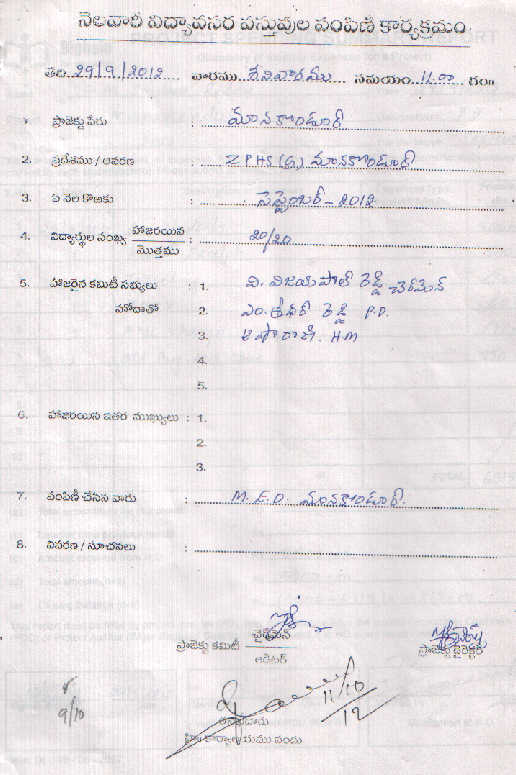 నెలవారీ విద్యావసర వస్తువుల పంపిణీ కార్యక్రమం
తేది 29/9/2012 వారము శనివారము సమయం 11.00 గం॥
1. ప్రాజెక్టు పేరు : మానకొండూర్
2. ప్రదేశము / ఆవరణ : Z PHS (G) మానకొండూర్
3. ఏ నెల కొఱకు : సెప్టెంబర్ - 2012
4. విద్యార్థుల సంఖ్య హాజరయిన : 20/20
మొత్తము
5. హాజరైన కమిటీ సభ్యులు : 1. వి. విజయపాల్ రెడ్డి చైర్మెన్
హోదాతో 2. ఎం. శ్రీధర్ రెడ్డి P.D.
3. ఉషారాణి. HM
4.
5.
6. హాజరయిన ఇతర ముఖ్యులు : 1.
2.
3.
7. పంపిణీ చేసిన వారు : M.E.O. మానకొండూర్.
8. వివరణ / సూచనలు :
ప్రాజెక్టు కమిటీ చైర్మెన్
ఆడిటర్
ప్రాజెక్టు డైరెక్టర్
9/10
11/10
12
కార్యాలయము నందు